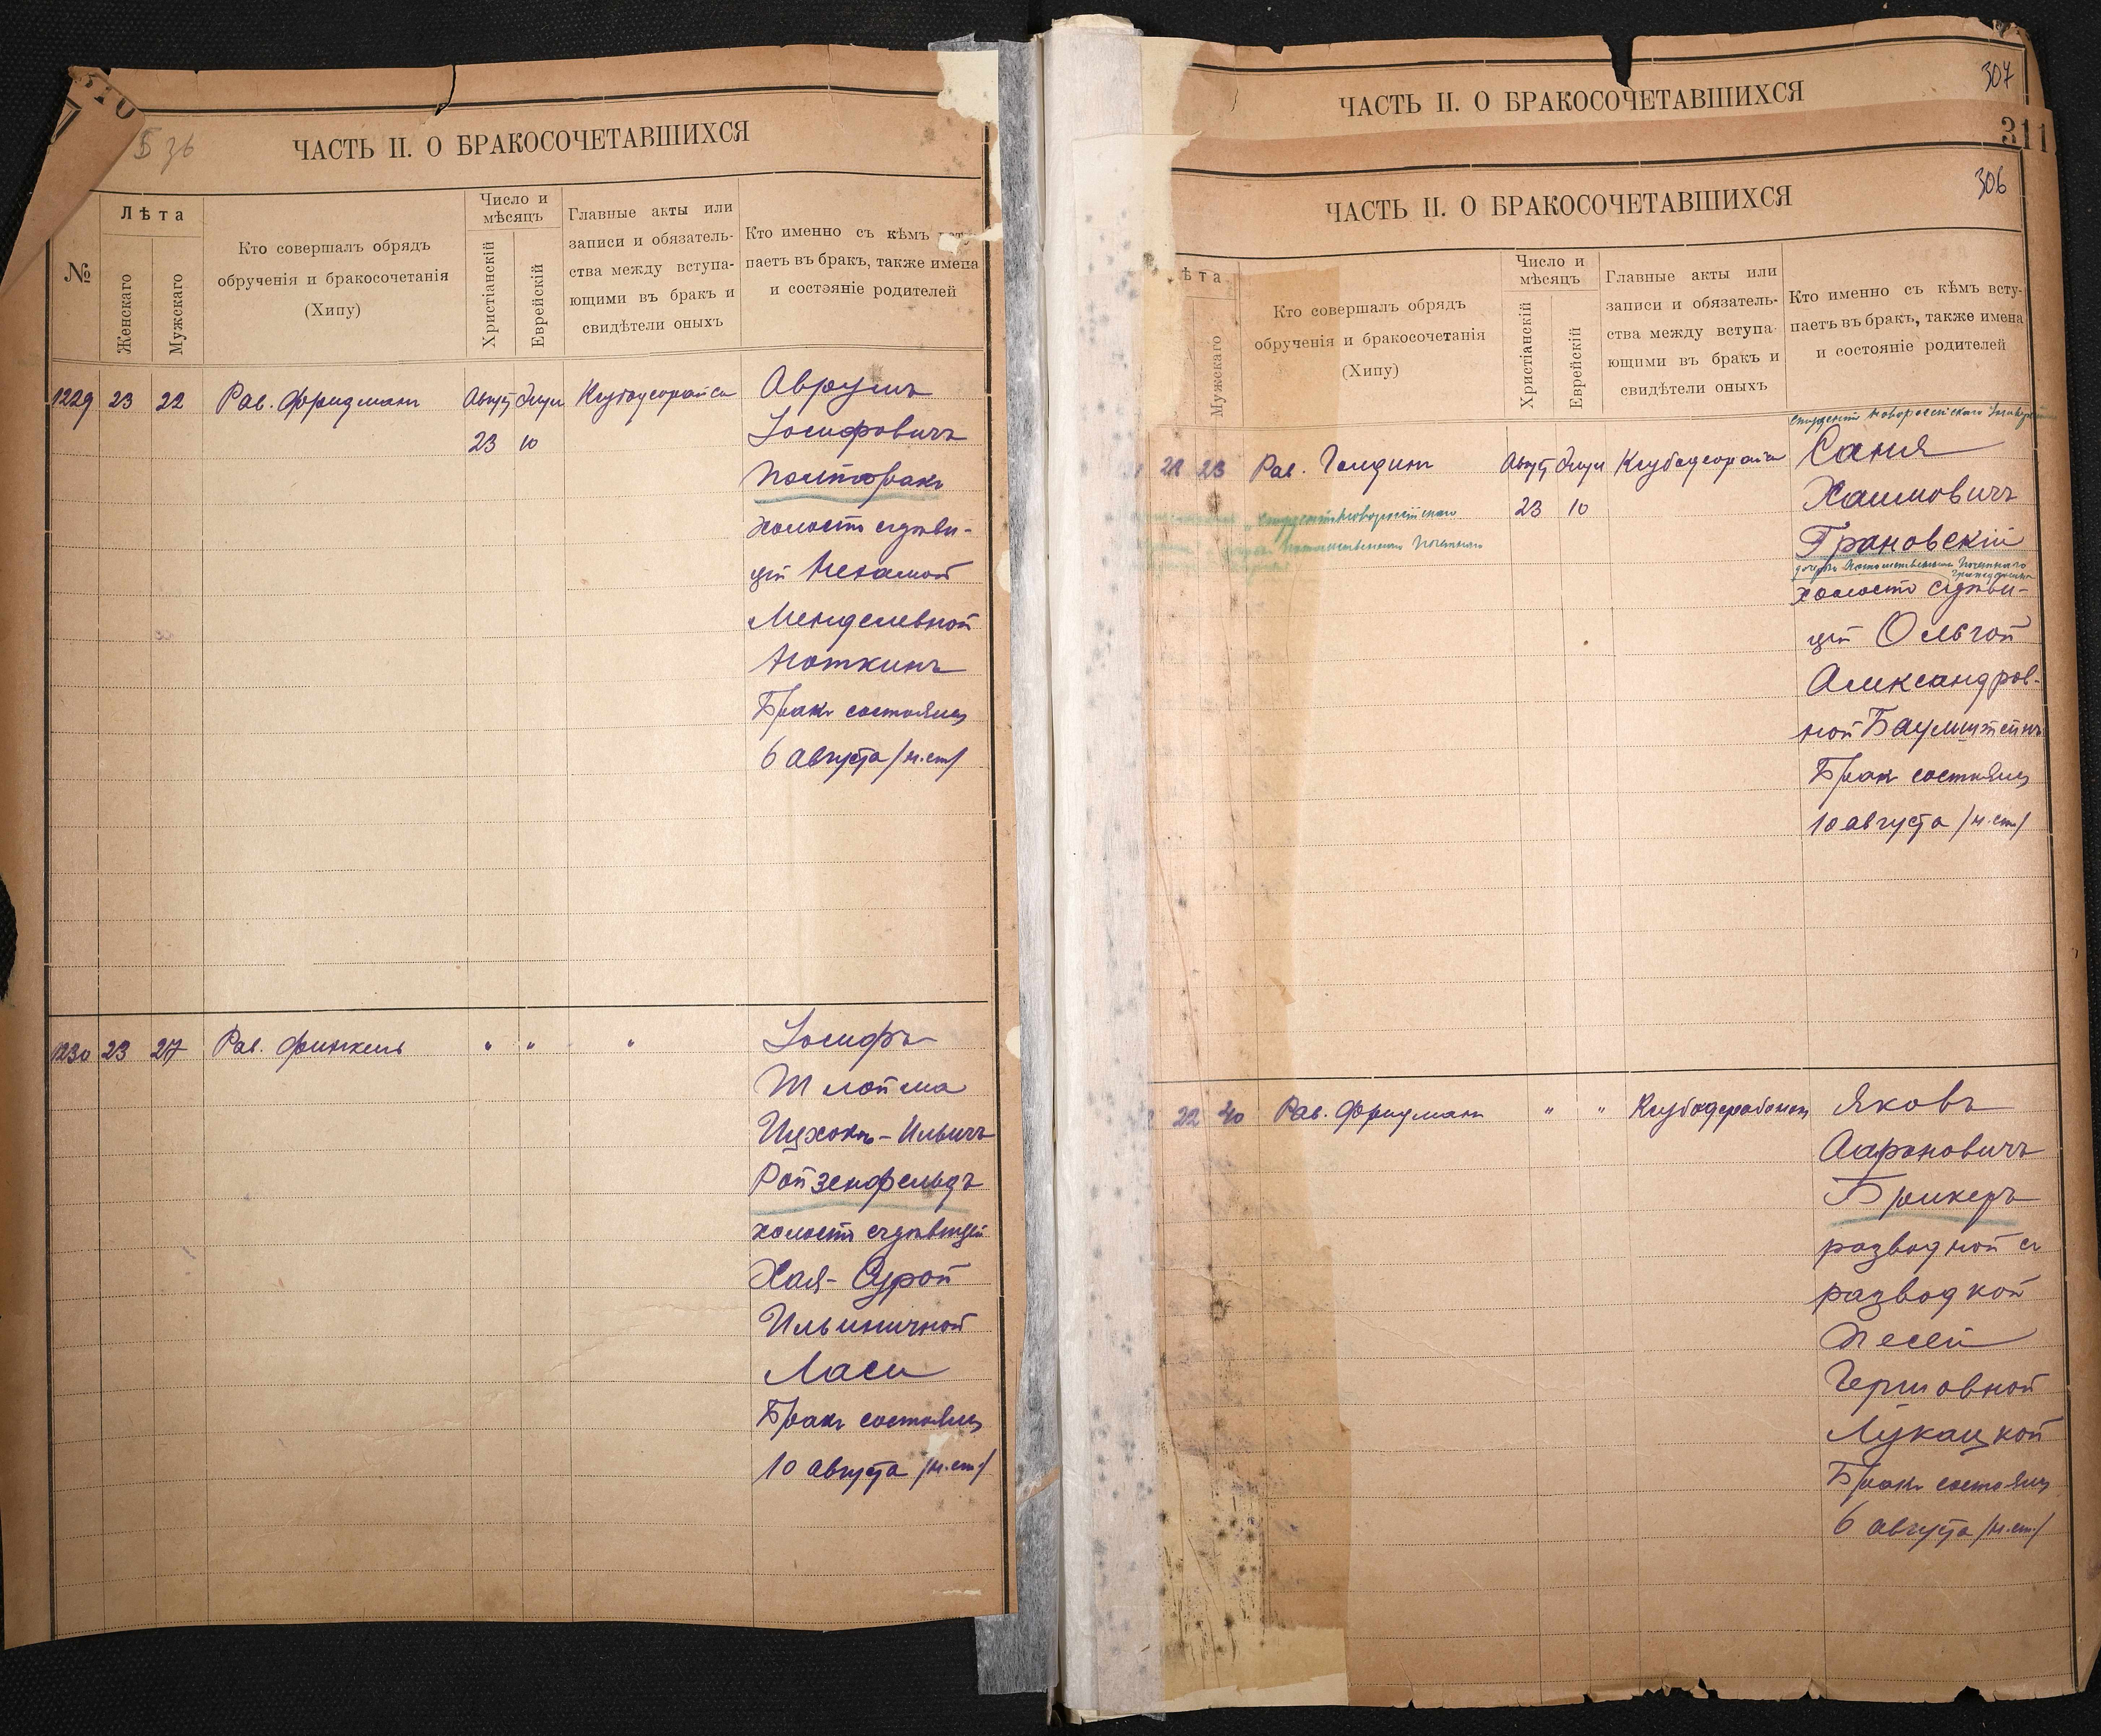 310
Б 36
ЧАСТЬ II. О БРАКОСОЧЕТАВШИХСЯ
№
Лѣта
Женскаго
Мужскаго
Кто совершалъ обрядъ
обрученія и бракосочетанія
(Хипу)
Число и
мѣсяцъ
Христіанскій
Еврейскій
Главные акты или
записи и обязатель-
ства между вступа-
ющими въ бракъ и
свидѣтели оныхъ
Кто именно съ кѣмъ всту-
паетъ въ бракъ, также имена
и состояніе родителей
1229 23 22 Рав. Фридманъ Август Элул Авруми
23 10 Іосифовичъ
Полторакъ
холостъ съ дѣви-
цей Нехамой
Менделевной
Ноткинъ
Бракъ состоялся
6 августа /н.ст/
1230 23 27 Рав. Финкель " " " Іосифъ
Шлойма
Ицхокъ-Ильичъ
Ройзенфельдъ
холостъ съ дѣвицей
Хая-Сурой
Ильиничной
Ласи
Бракъ состоялся
10 августа /н.ст/
ЧАСТЬ II. О БРАКОСОЧЕТАВШИХСЯ
307
311
306
ЧАСТЬ II. О БРАКОСОЧЕТАВШИХСЯ
ѣта
Мужскаго
Кто совершалъ обрядъ
обрученія и бракосочетанія
(Хипу)
Число и
мѣсяцъ
Христіанскій
Еврейскій
Главные акты или
записи и обязатель-
ства между вступа-
ющими въ бракъ и
свидѣтели оныхъ
Кто именно съ кѣмъ всту-
паетъ въ бракъ, также имена
и состояніе родителей
студентъ Новороссійскаго
21 23 Рав. Гольдинъ Август Элул Саня
23 10 Хаимовичъ
студентъ Новороссійскаго
Потомственнаго Почетнаго
Грановскій
дочерью Потомственнаго Почетнаго
гражданина
холостъ съ дѣви-
цей Ольгой
Александров-
ной Баумштейнъ
Бракъ состоялся
10 августа /н.ст/
22 40 Рав. Фридманъ " " Яковъ
Аароновичъ
Брикеръ
разводной съ
разводкой
Песей
Гершовной
Лукацкой
Бракъ состоялся
6 августа /н.ст/